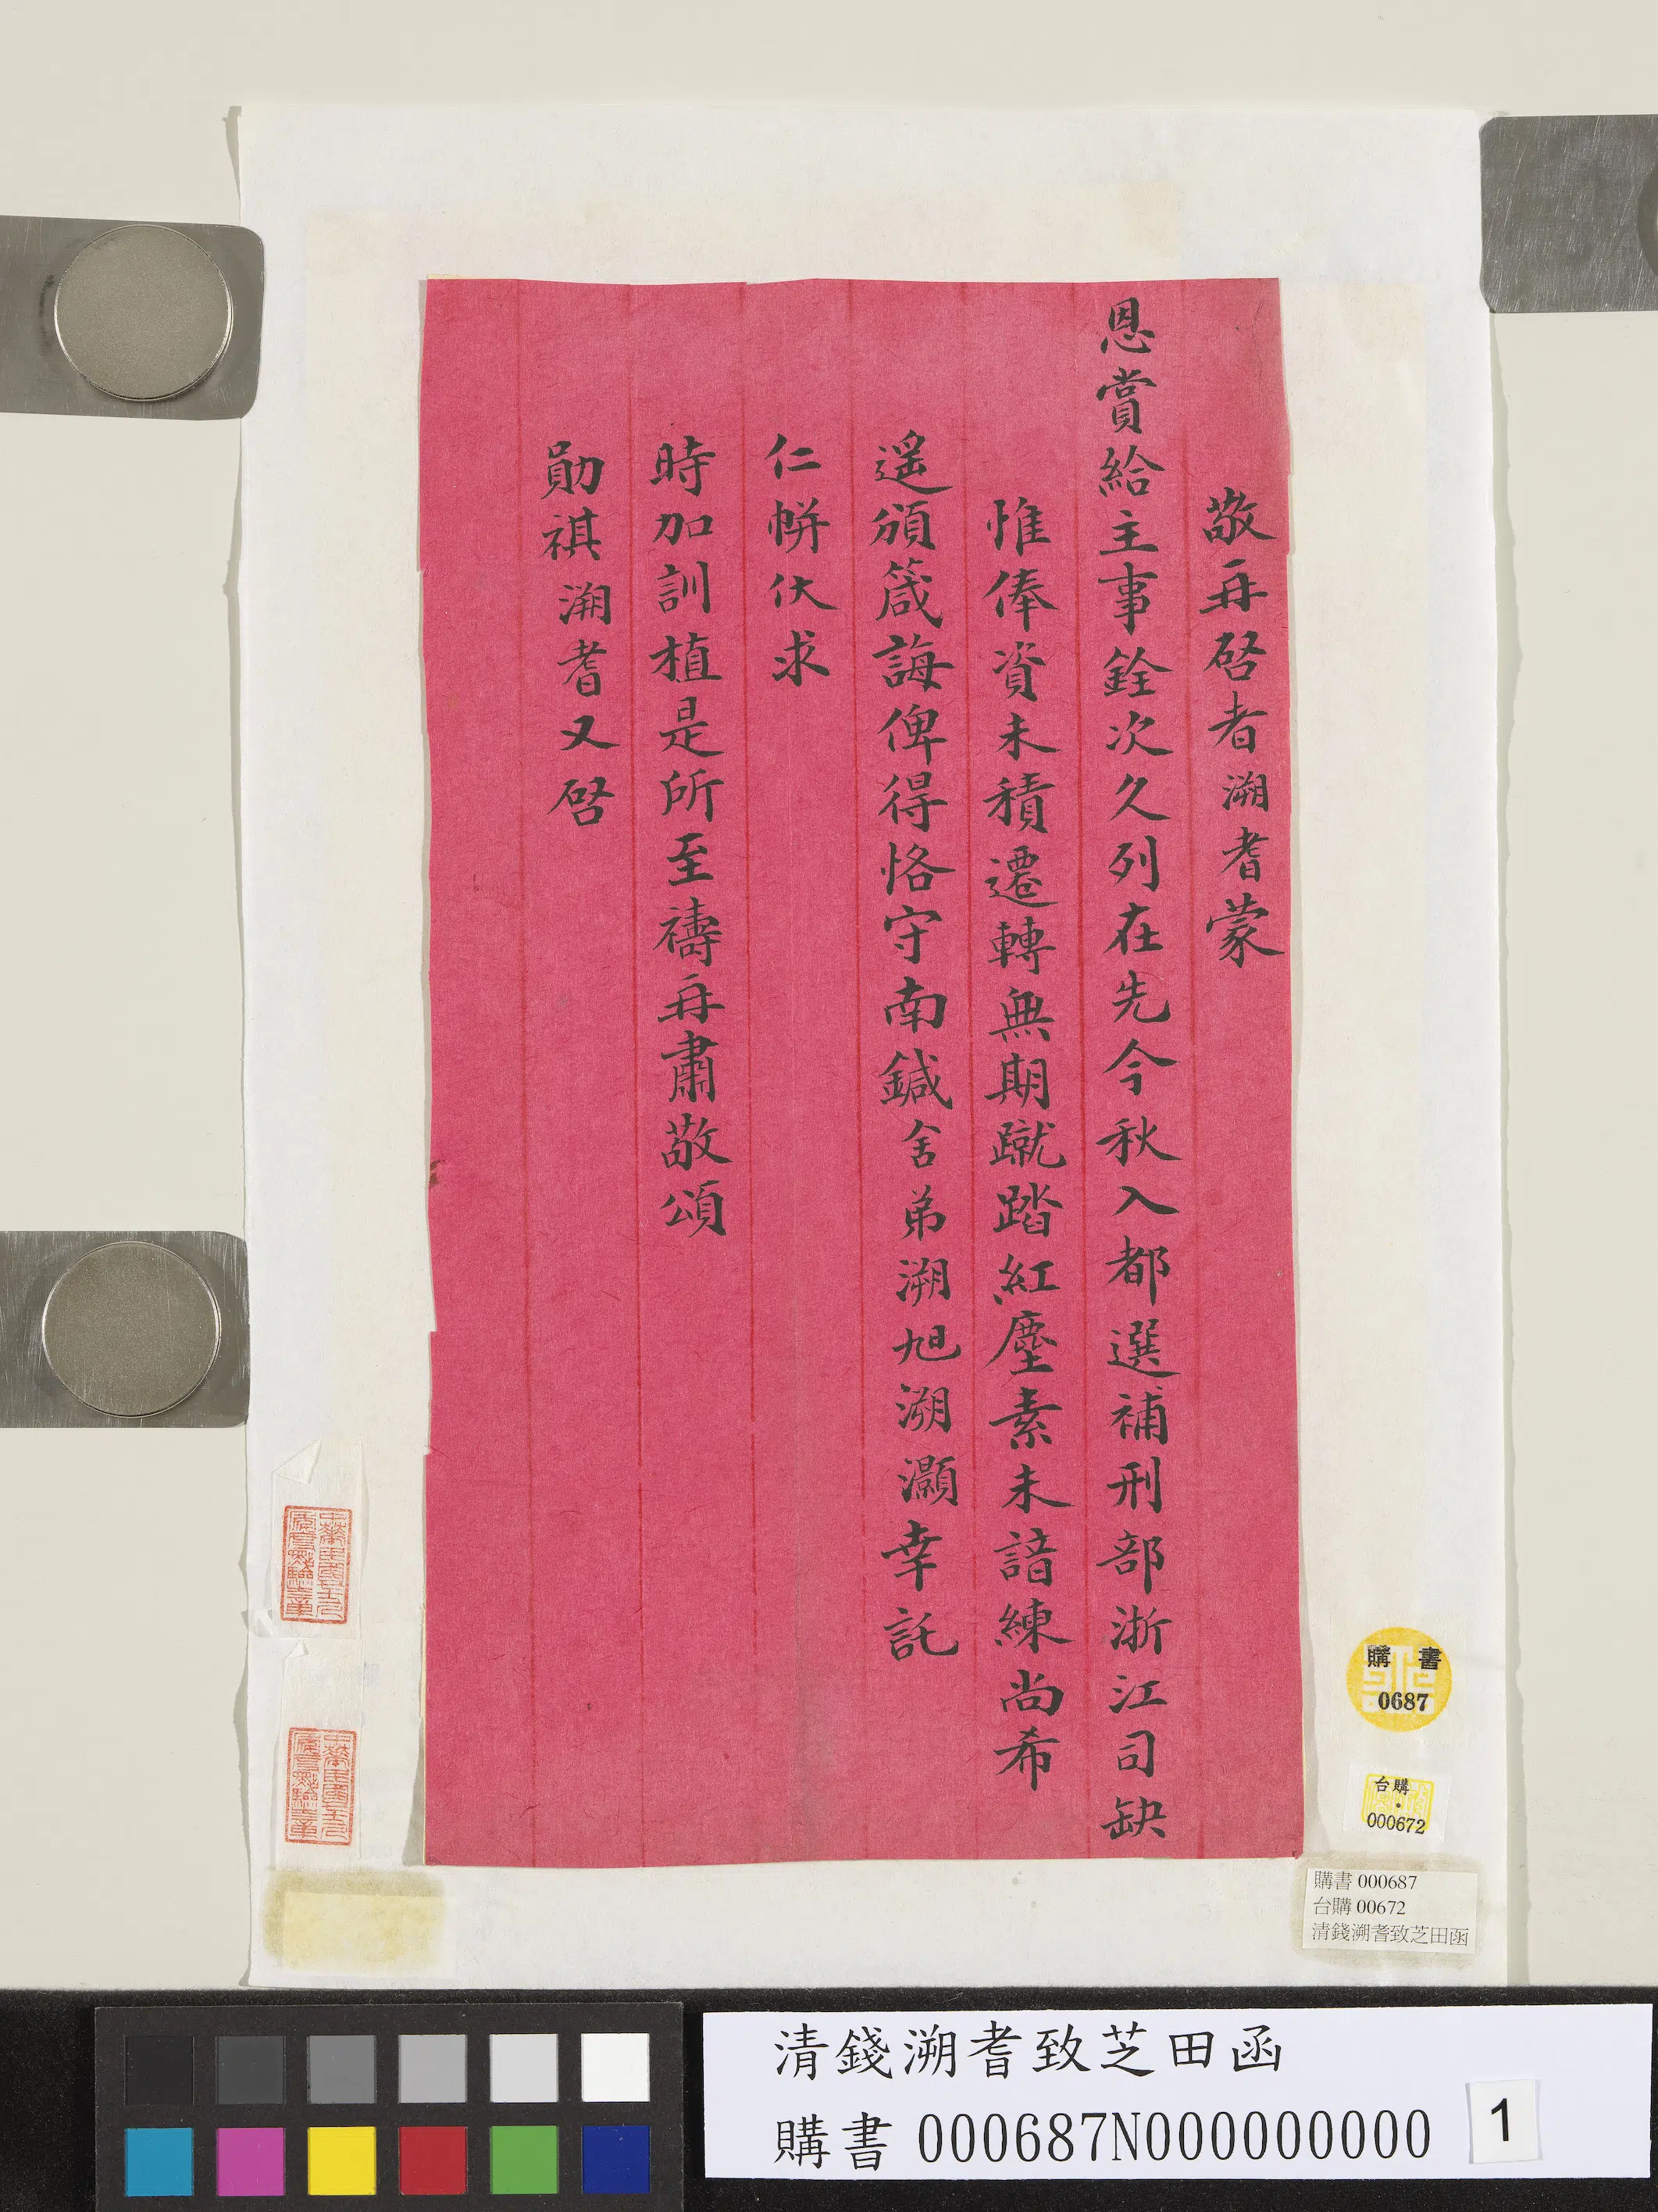 敬再啓者溯耆蒙
恩賞給主事銓次久列在先今秋入都選補刑部浙江司缺
惟俸資未積遷轉無期蹴踏紅塵素未諳練尚希
遥頒箴誨俾得恪守南鍼舍弟溯旭溯灝幸託
仁帡伏求
時加訓植是所至禱再肅敬頌
勛祺溯耆又啓
購書
0687
台購
000672
購書 000687
台購 00672
清錢溯耆致芝田函
清錢溯耆致芝田函
購書 000687N000000000
1